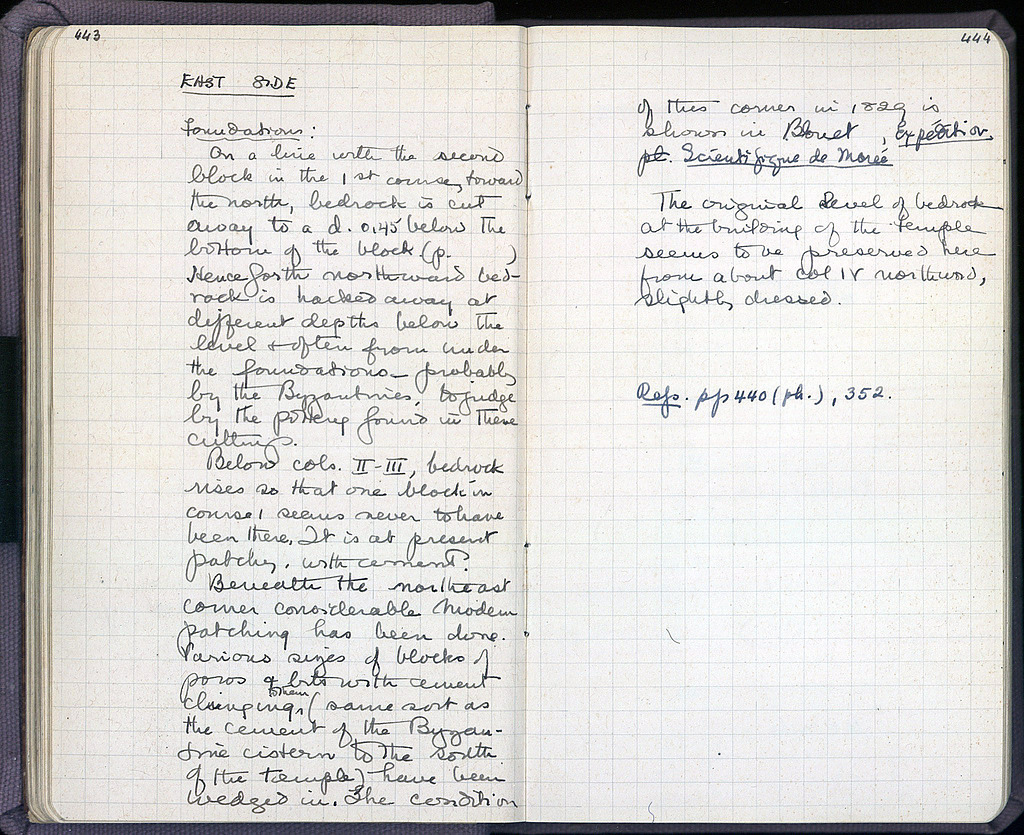 443
EAST SIDE
Foundations:
On a line with the second
block in the 1st course, toward
the north, bedrock is cut
away to a d. 0.45 below the
bottom of the block (p.      )
Henceforth northward bed-
rock is hacked away at
different depths below the
level & often from under
the foundations – probably
by the Byzantines, to judge
by the pottery found in these
cuttings.
Below cols. II-III, bedrock
rises so that one block in
course 1 seems never to have
been there. It is at present
patched with cement.
Beneath the northeast
corner considerable modern
patching has been done.
Various sizes of blocks of
poros & bits with cement
clinging to them (same sort as
the cement of the Byzan-
tine cistern to the south
of the temple) have been
wedged in. The condition
444
of this corner in 1829 is
shown in Blouet, Expédition
Scientifique de Morée
The original level of bedrock
at the building of the temple
seems to be preserved here
from about col IV northward,
slightly dressed.
Refs. pp 440 (ph.), 352.